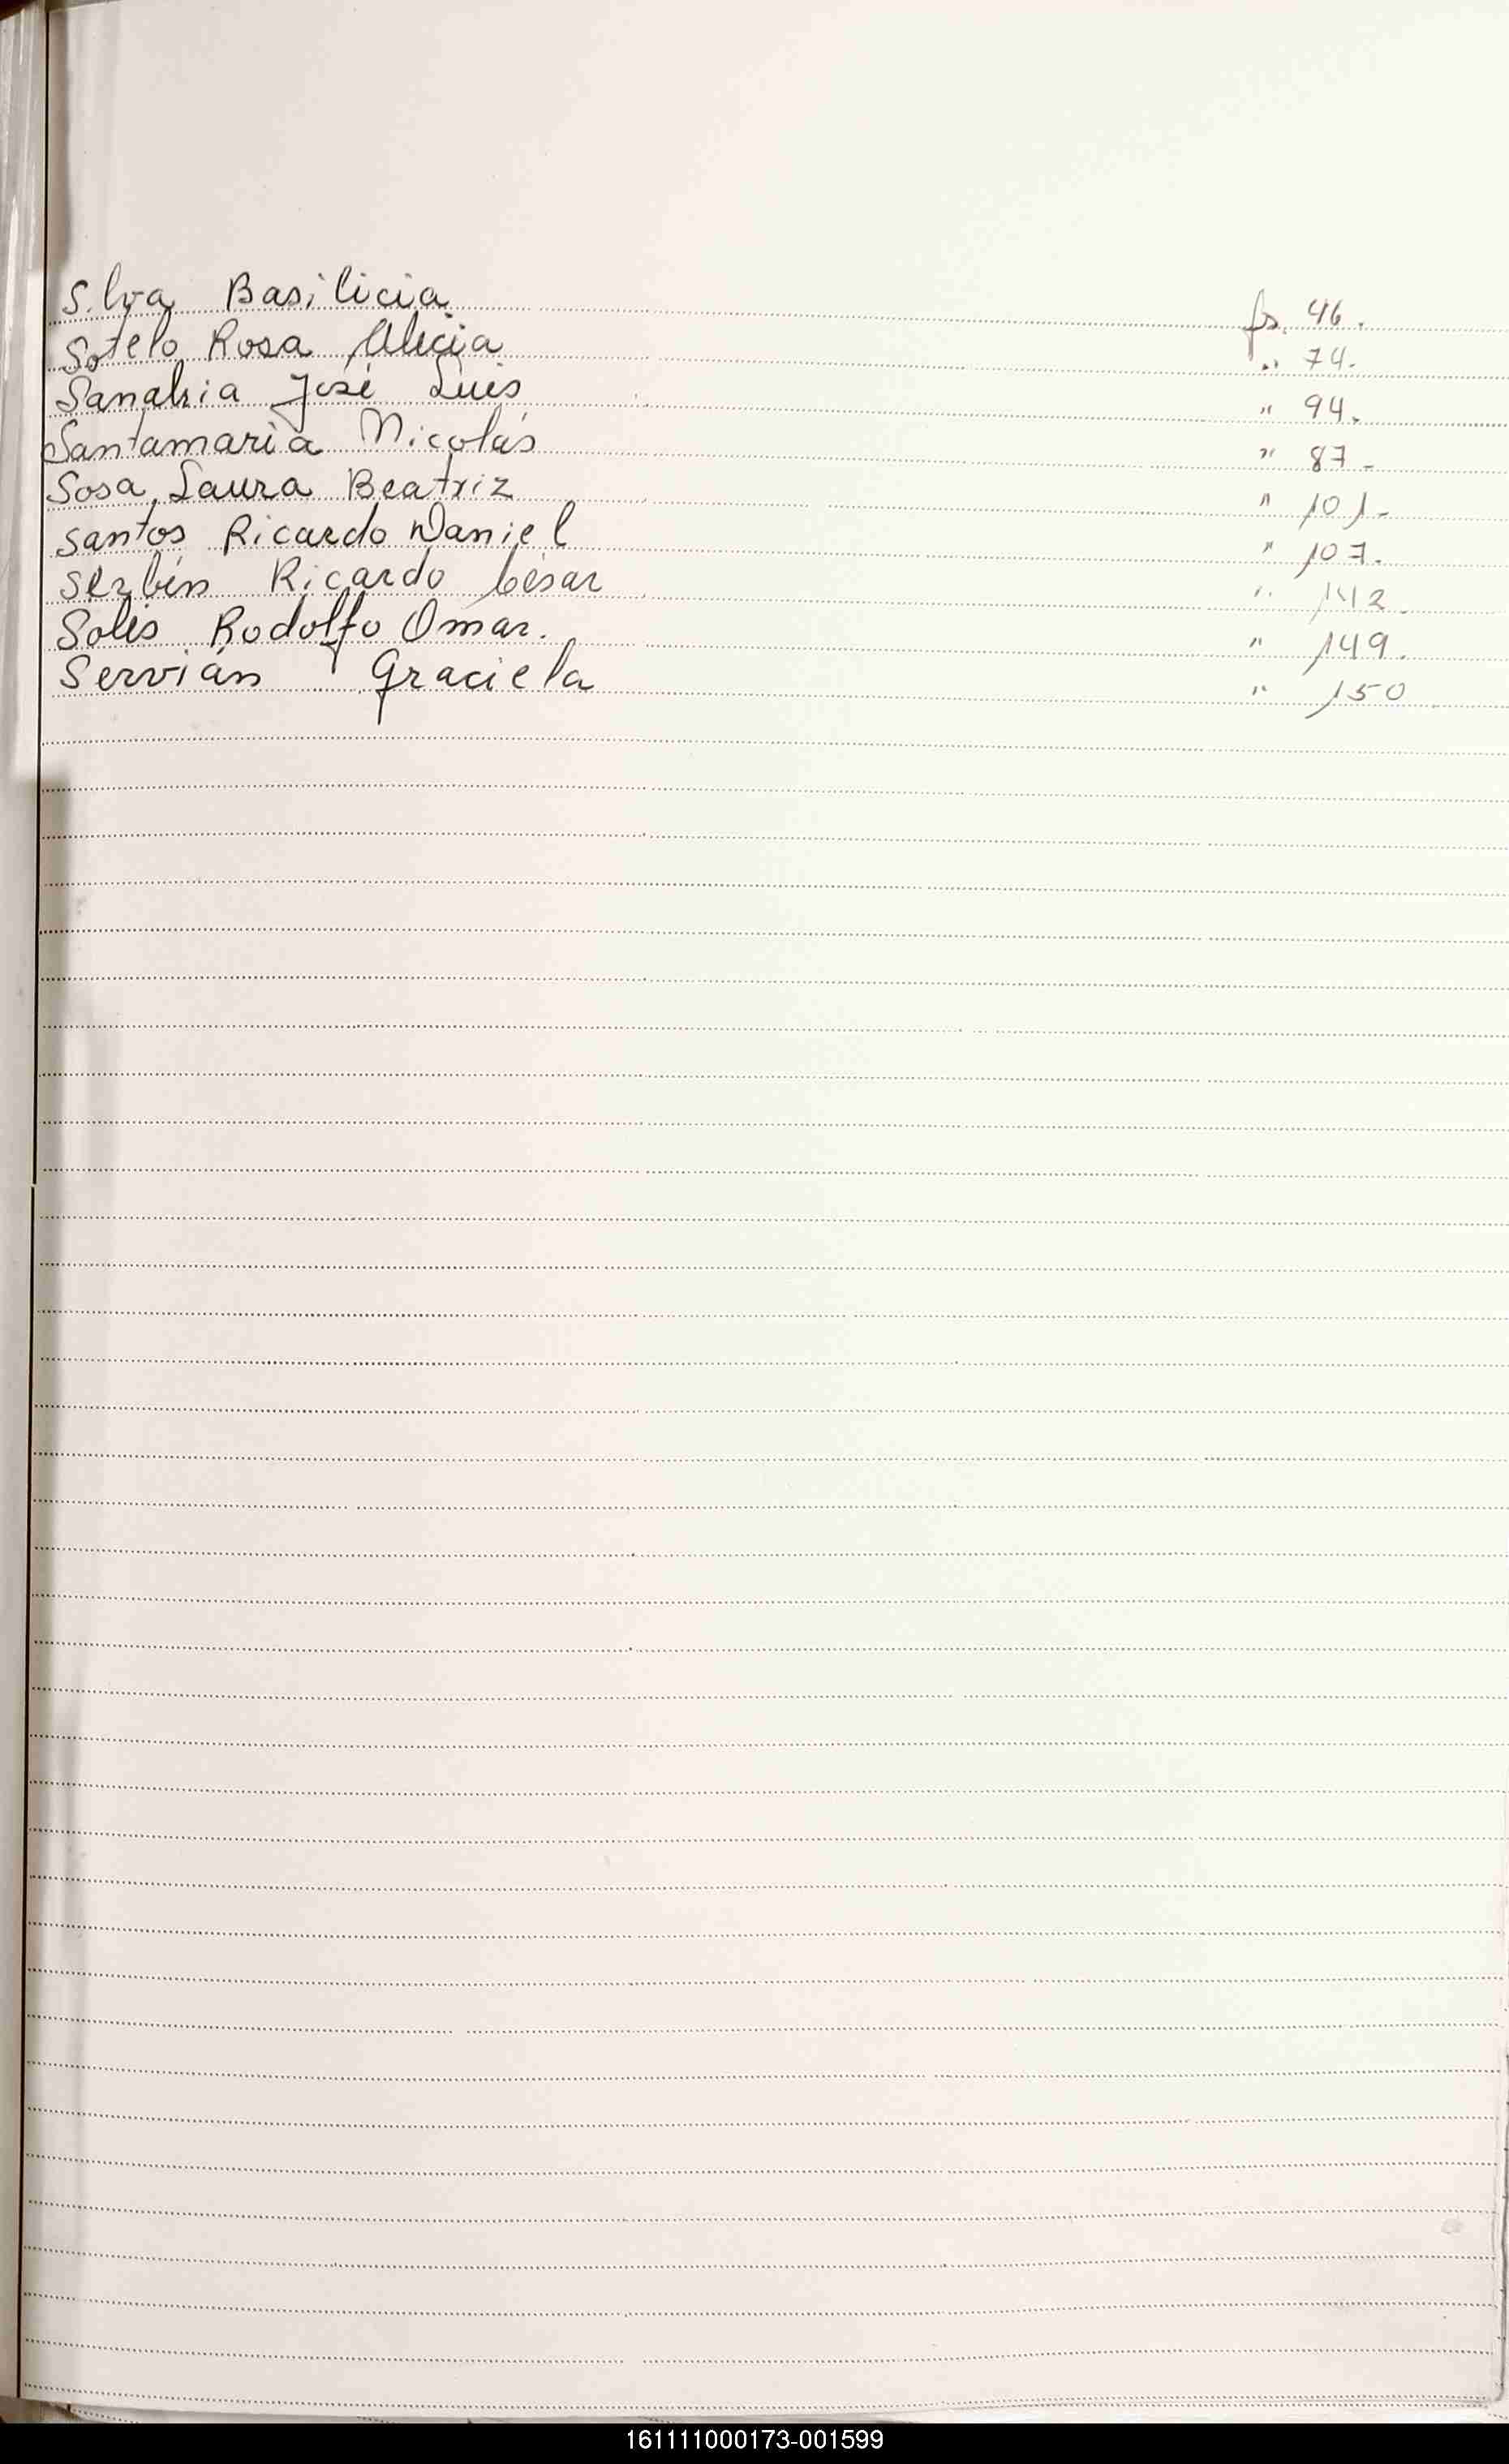 Silva Basilicia fs. 46.
Sotelo Rosa Alicia " 74.
Sanabria José Luis " 94.
Santamaria Nicolás " 87-
Sosa, Laura Beatriz " 101-
Santos Ricardo Daniel " 107.
Serbin Ricardo César " 142.
Solis Rodolfo Omar. " 149.
Servián Graciela " 150
161111000173-001599